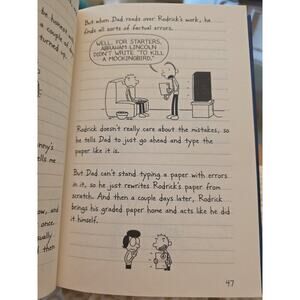 be honest
a couple of
turned up.
nny's
tells me
ow, and
once.
sually
d then
But when Dad reads over Rodrick's work, he
finds all sorts of factual errors.
WELL, FOR STARTERS,
ABRAHAM LINCOLN
DIDN'T WRITE "TO KILL
A MOCKINGBIRD."
Rodrick doesn't really care about the mistakes, so
he tells Dad to just go ahead and type the
paper like it is.
But Dad can't stand typing a paper with errors
in it, so he just rewrites Rodrick's paper from
scratch. And then a couple days later, Rodrick
brings his graded paper home and acts like he did
it himself.
47